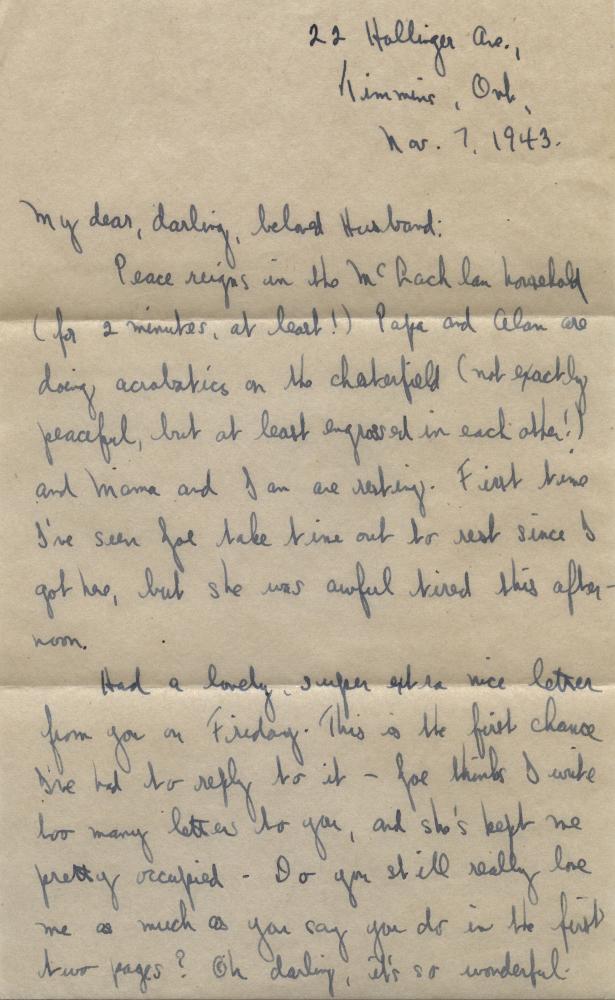 22 Hollinger Ave.,
Timmins, Ont.,
Nov. 7, 1943.
My dear, darling, beloved Husband:
Peace reigns in the McLachlan household
(for 2 minutes, at least!) Papa and Alan are
doing acrobatics on the chesterfield (not exactly
peaceful, but at least engrossed in each other!)
and Mama and I am are resting. First time
I've seen Joe take time out to rest since I
got here, but she was awful tired this after-
noon.
Had a lovely, super extra nice letter
from you on Friday. This is the first chance
I've had to reply to it - Joe thinks I write
too many letters to you, and she's kept me
pretty occupied - Do you still really love
me as much as you say you do in the first
two pages? Oh darling, it's so wonderful.